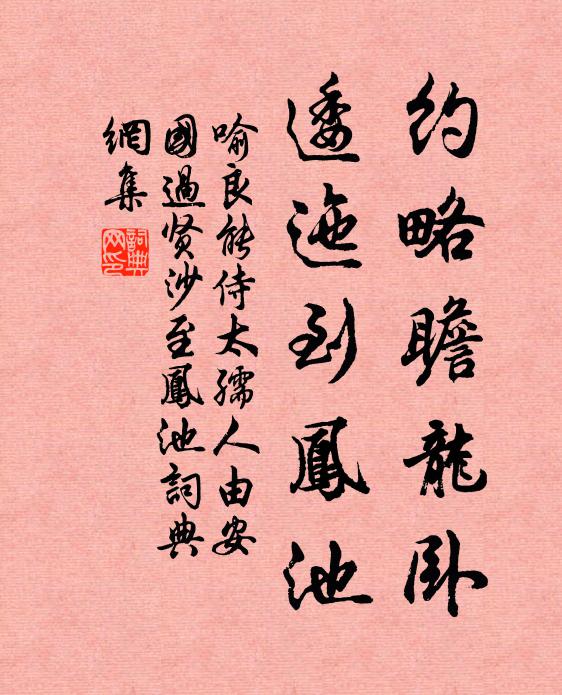 約略瞻龍卧
逶迤到鳳池
喻良能侍太孺人由安
國過贤沙至鳳池詞典
網集
詞典
网印